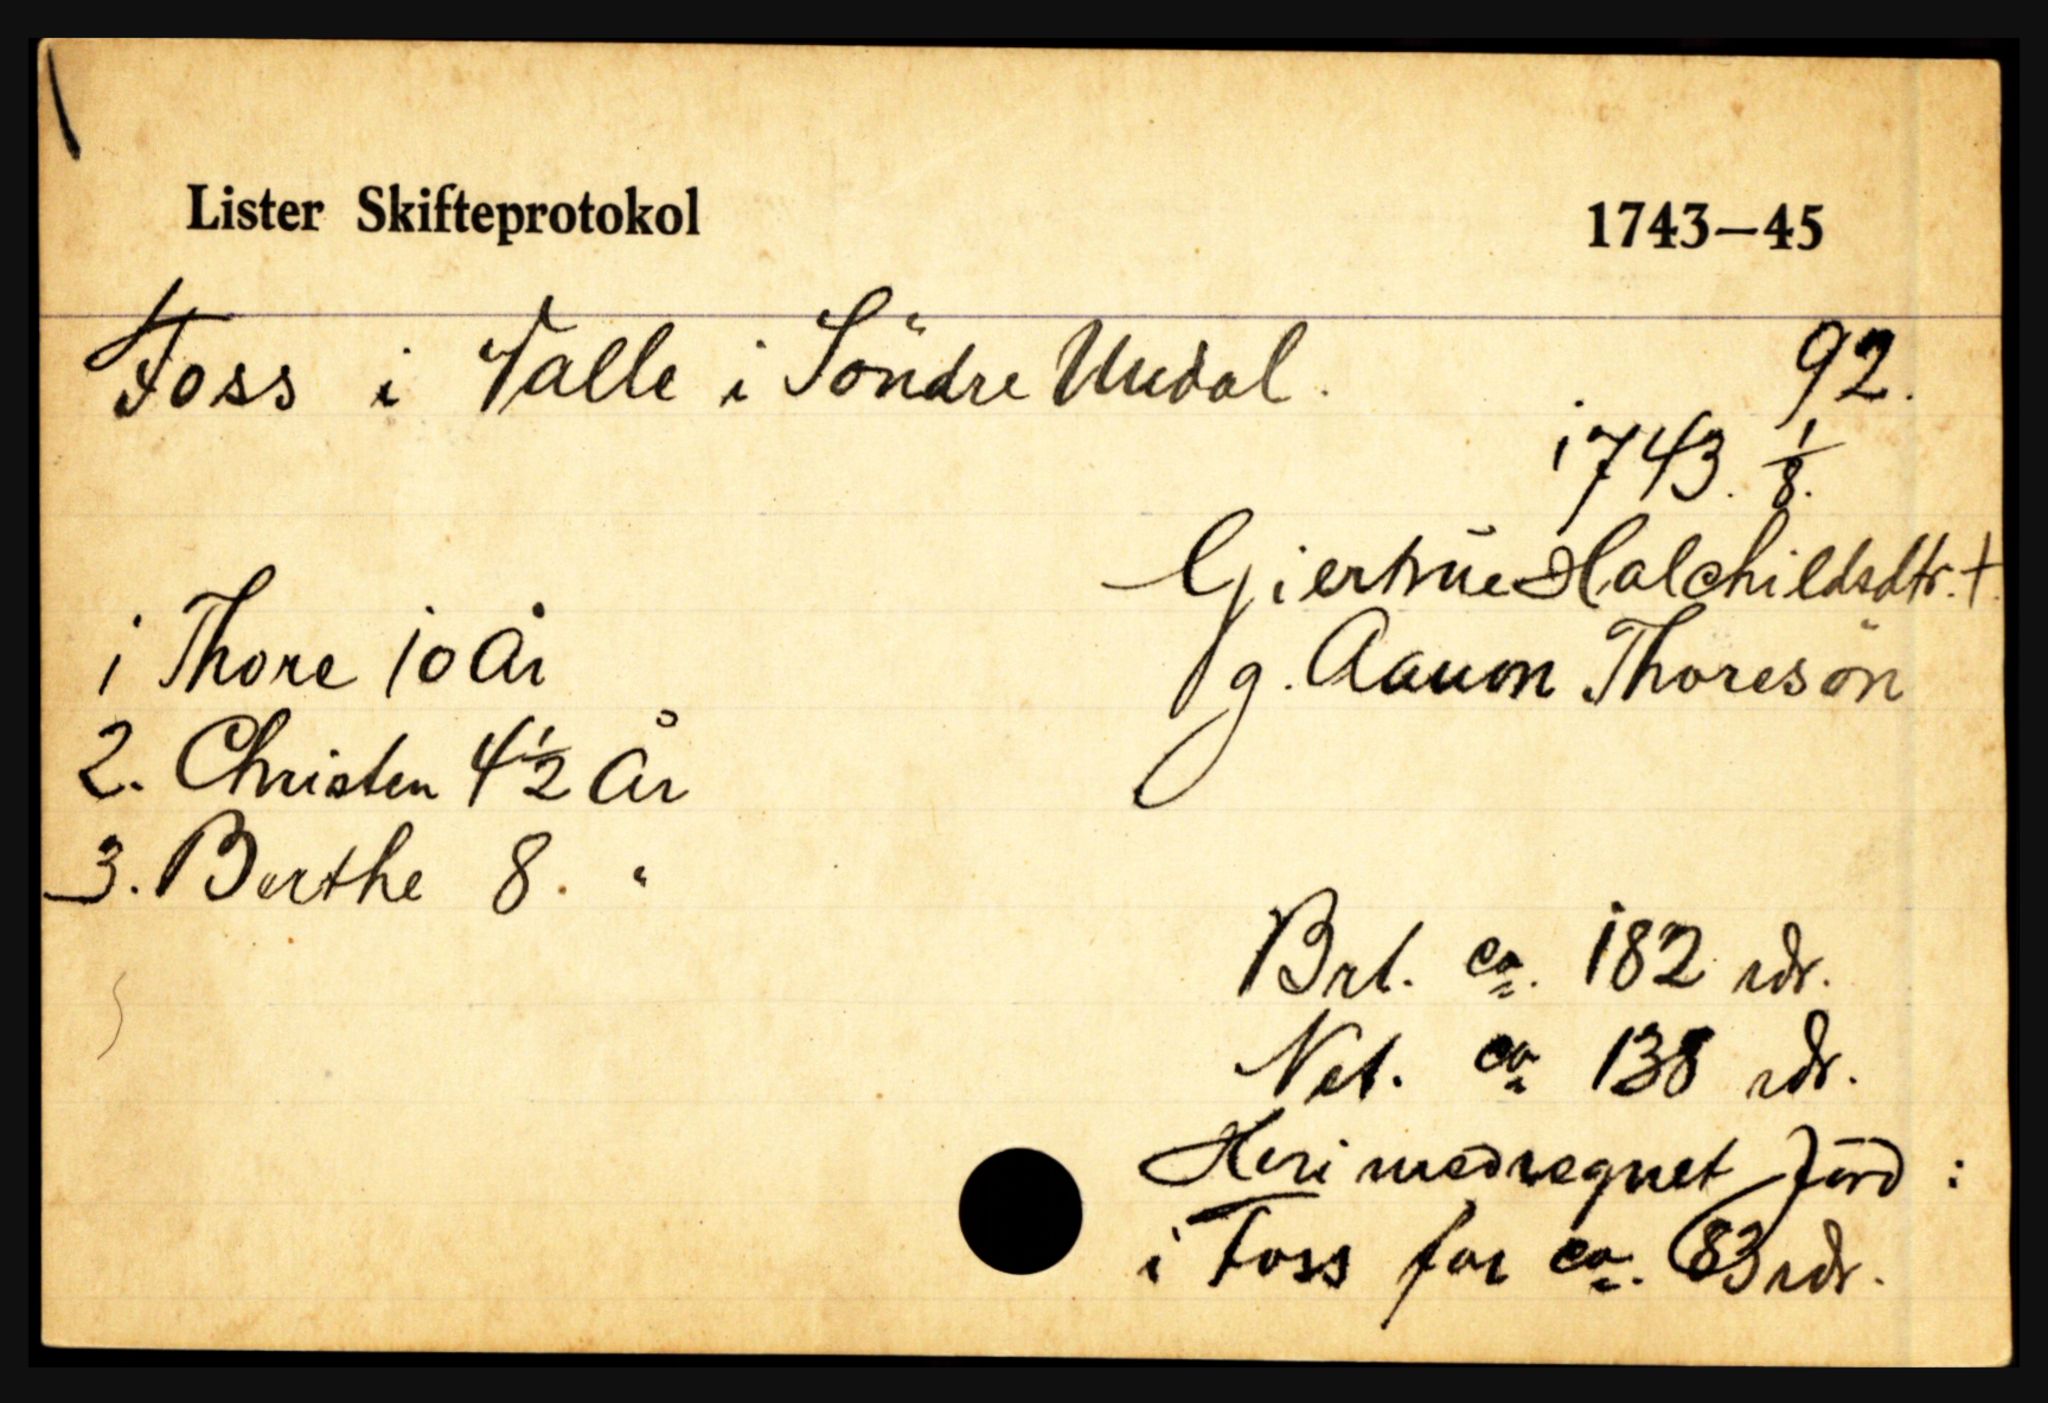 Lister Skifteprotokol 1743—45
Foss i Valle i Söndre Undal. 92.
1743. 1/8.
Giertrue Halchildsdtr. +.
1 Thore 10 År
g. Aanon Thoresön
2. Christen 4 1/2 År
3. Berthe 8. "
Brt. ca. 182 rdr.
Net. ca 138 rdr.
Heri medregnet Jord :
i Foss for ca. 83 rdr.